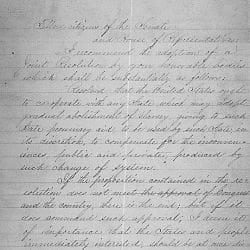 Fellow citizens of the Senate,
and House of Representatives,
I recommend the adoption of a
Joint Resolution by your honorable bodies
which shall be substantially as follows:
Resolved that the United States ought
to co-operate with any State which may adopt
gradual abolishment of slavery, giving to such
State pecuniary aid, to be used by such State in
its discretion, to compensate for the inconven-
iences, public and private, produced by
such change of system.
If the proposition contained in the re-
solution does not meet the approval of Congress
and the country, there is the end; but if it
does command such approval, I deem it
of importance that the States and people
immediately interested, should be at once